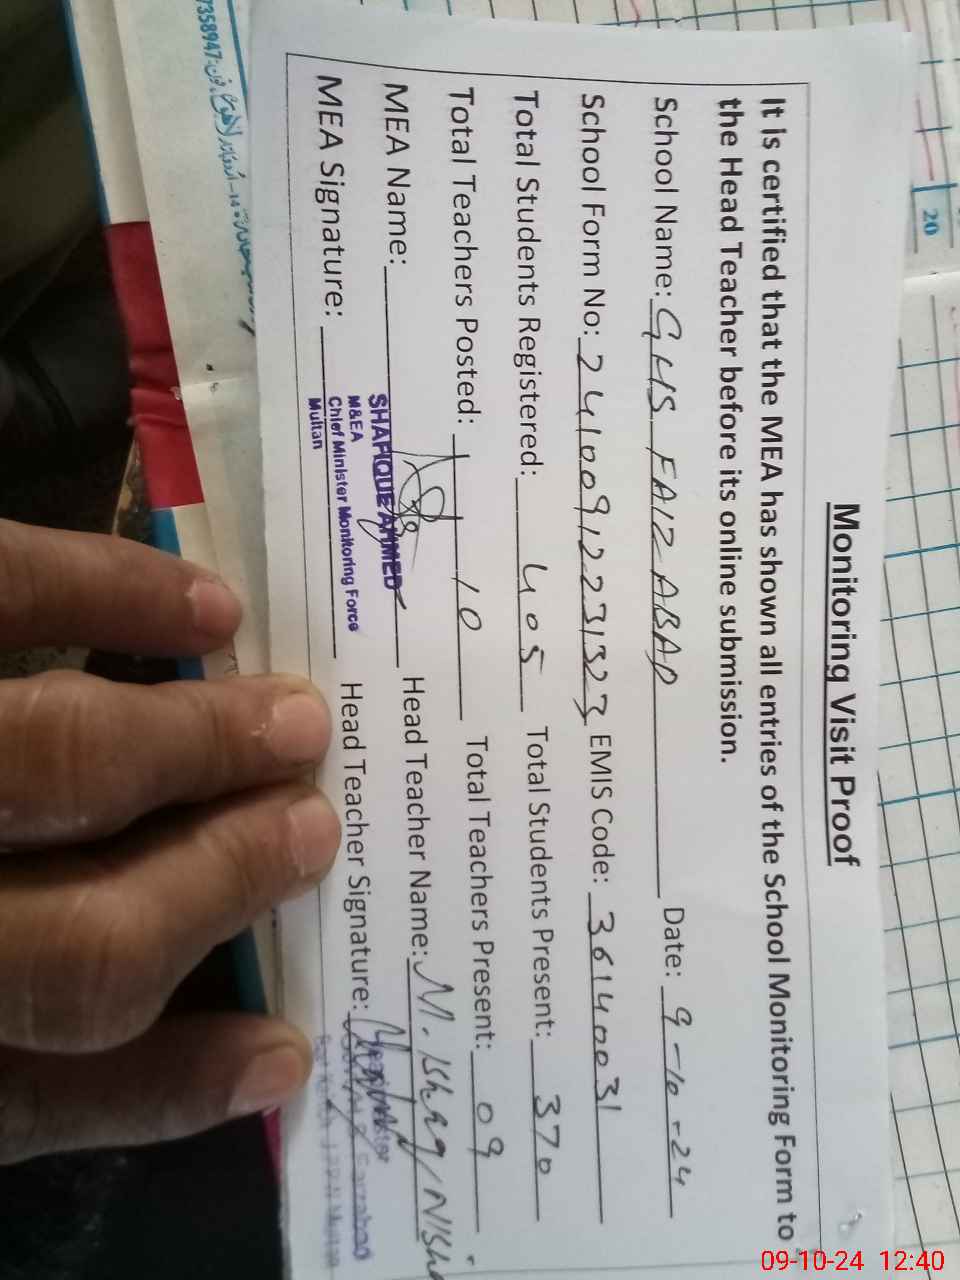 Monitoring Visit Proof
It is certified that the MEA has shown all entries of the School Monitoring Form to
the Head Teacher before its online submission.
School Name: GHS FAIZ ABAD Date: 9-10-24
School Form No: 24100912231323 EMIS Code: 36140031
Total Students Registered: 405 Total Students Present: 370
Total Teachers Posted: 10 Total Teachers Present: 09
MEA Name: SHAFIQUE AHMED Head Teacher Name: M. Ishaq
MEA Signature: Head Teacher Signature:
M&EA
Chief Minister Monitoring Force
Multan
20
7358947
09-10-24 12:40